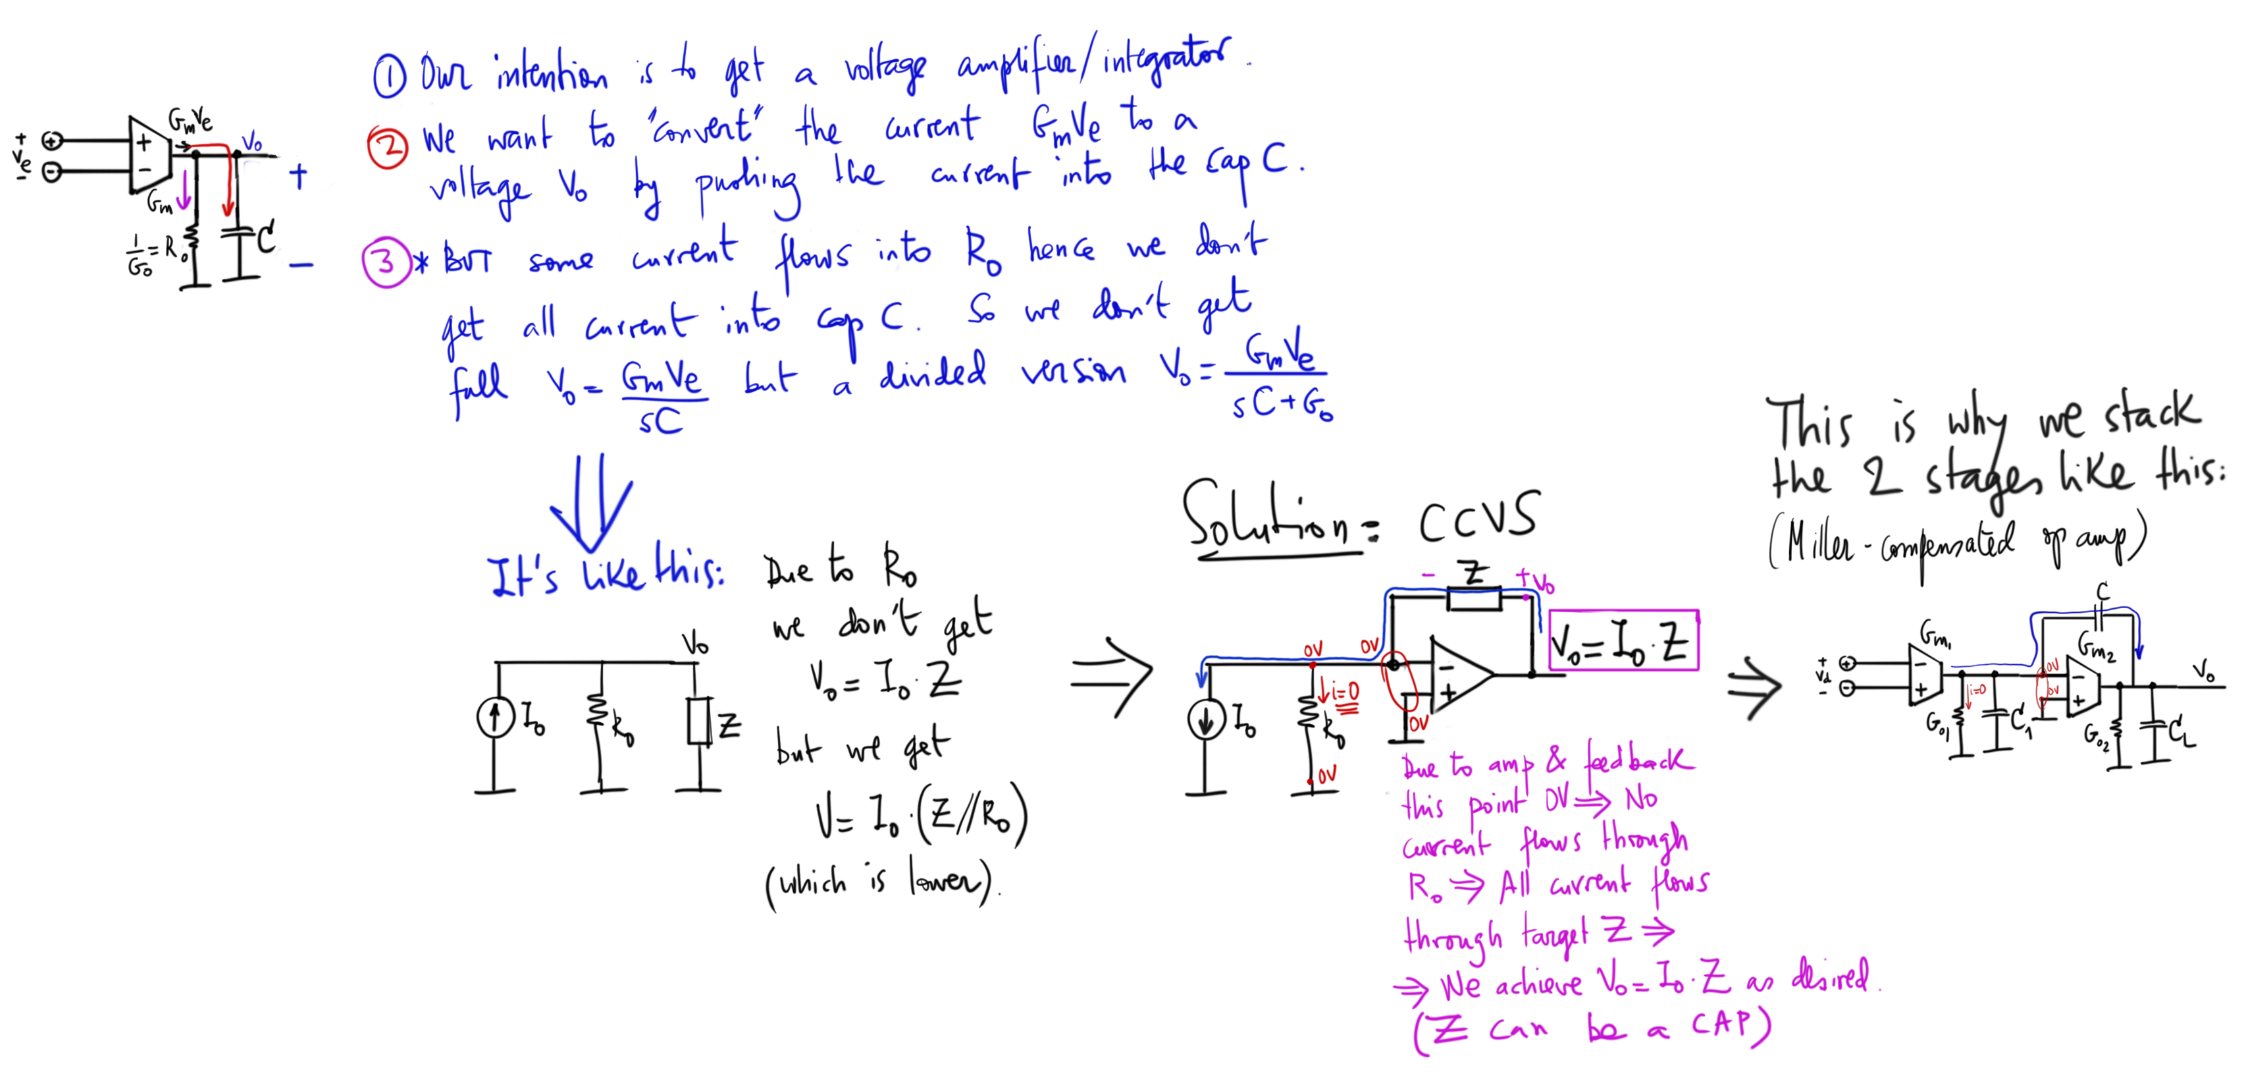 ① Our intention is to get a voltage amplifier/integrator.
② We want to "convert" the current GmVe to a
voltage Vo by pushing the current into the cap C.
③ * BUT some current flows into Ro hence we don't
get all current into cap C. So we don't get
full Vo = GmVe/sC but a divided version Vo = GmVe/(sC+Go)
+
Ve
-
+
-
+
-
GmVe
Vo
Gm
1/Go = Ro
C
+
-
It's like this:
Vo
Io
Ro
Z
Due to Ro
we don't get
Vo = Io·Z
but we get
V = Io·(Z//Ro)
(which is lower).
Solution: CCVS
- Z + Vo
0V
0V
-
+
Vo = Io·Z
Io
i=0
Ro
0V
0V
Due to amp & feedback
this point 0V ⇒ No
current flows through
Ro ⇒ All current flows
through target Z ⇒
⇒ We achieve Vo = Io·Z as desired.
(Z can be a CAP)
This is why we stack
the 2 stages like this:
(Miller-compensated op amp)
C
Gm1
Gm2
+
Vd
-
+
-
-
+
i=0
0V
0V
-
+
Vo
Go1
C1
Go2
CL